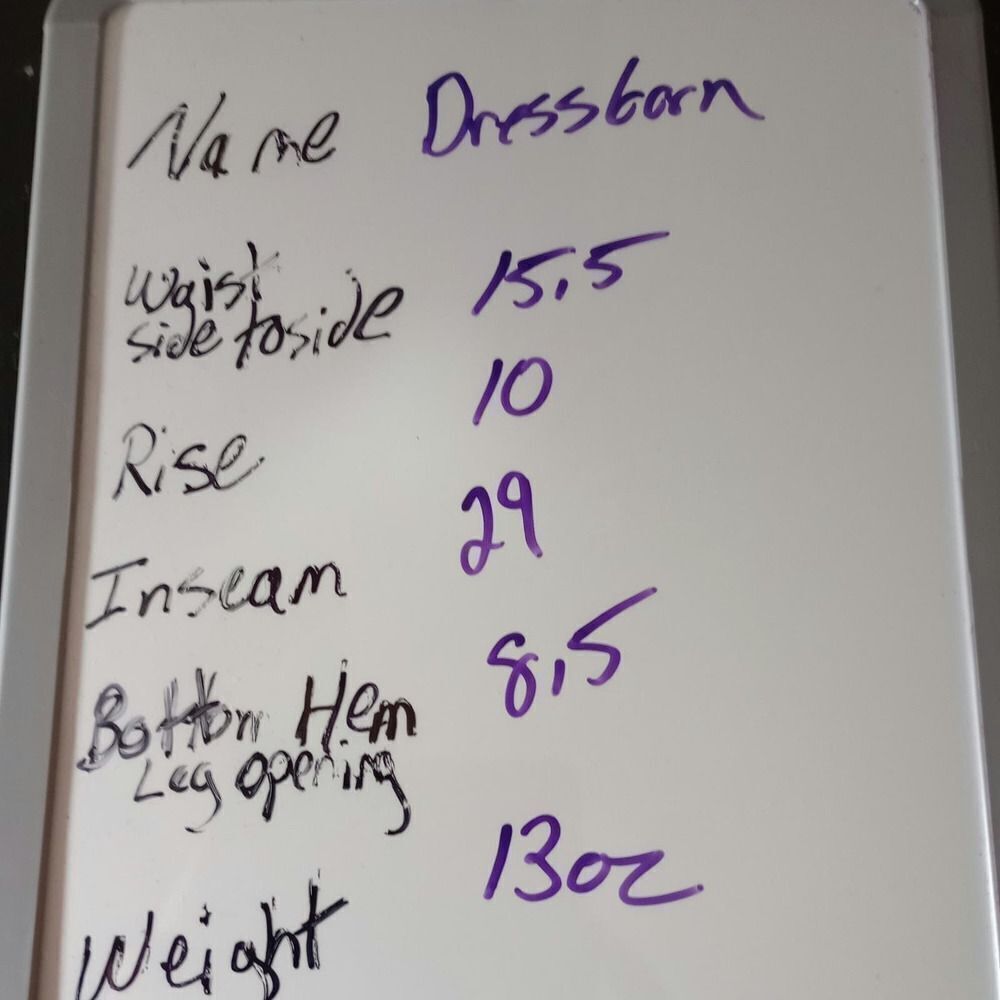 Name Dressbarn
Waist
side to side 15.5
Rise 10
Inseam 29
Bottom Hem 8.5
Leg opening
Weight 13oz